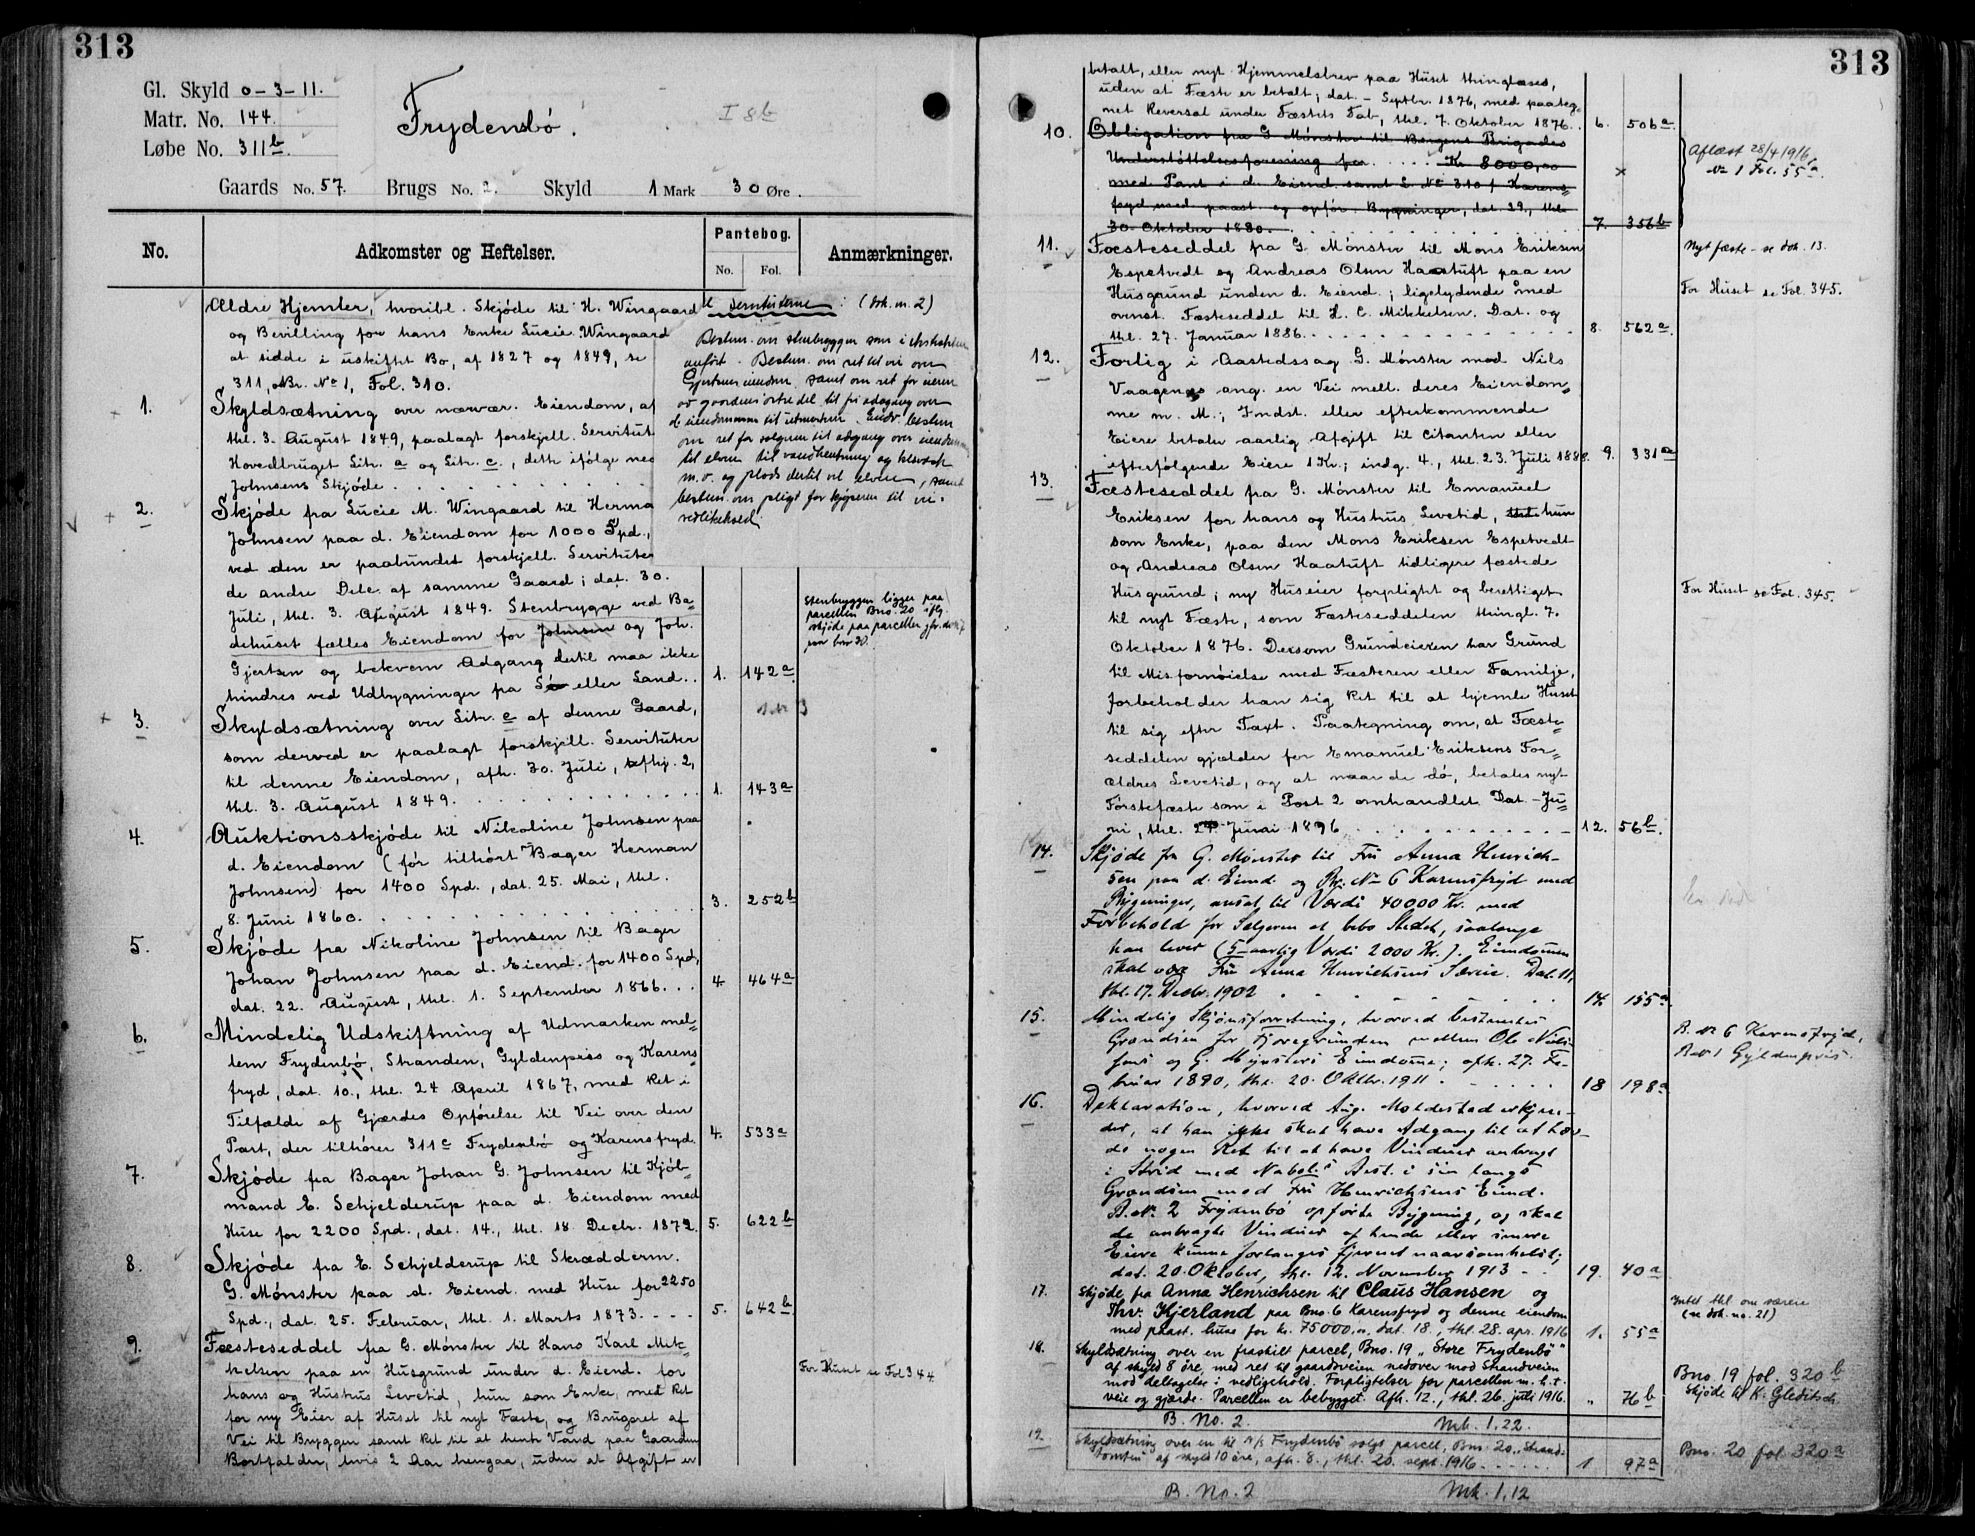 313
Gl. Skyld 0-3-11.
Matr. No. 144.
Løbe No. 311b.
Frydensbö.
I 8b
Gaards No. 57. Brugs No. 2. Skyld 1 Mark 30 Øre.
No. Adkomster og Heftelser. Pantebog. No. Fol. Anmærkninger.
Ældre Hjemler, hvoribl. Skjöde til H. Wingaard
og Bevilling for hans Enke Lucie Wingaard
at sidde i uskiftet Bo, af 1827 og 1849, se
311, Br. No 1, Fol. 310.
1. Skyldsætning over nærvær. Eiendom, af
thl. 3. August 1849, paalagt forskjell. Servitut
Hovedbruget Litr. a og Litr. c., dette ifölge
Johnsens Skjöde
2. Skjöde fra Lucie M. Wingaard til Herma
Johnsen paa d. Eiendom for 1000 Spd.,
ved den er paabundet forskjell. Servituter
de andre Dele af samme Gaard; dat. 30.
Juli, thl. 3. August 1849. Stenbrygge ved Ba-
dehuset fælles Eiendom for Johnsen og Joh.
Gjertsen og bekvem Adgang dertil maa ikke
hindres ved Udbygninger fra Sö eller Land. 1. 142a
Servituterne: (dok. nr. 2)
Bestem. om stenbryggen som i ekstrakten
anfört. Bestem. om ret til vei om
Gjertsens eiendom, samt om ret for eieren
av gaardens östre del til fri adgang over
d. eiendommen til utmarken. Endv. bestem
om ret for sælgeren til adgang over eiendommen
til elven til vandhentning og klesvask
m.v. og plads dertil ved elven, samt
bestem. om pligt for kjöperen til vei-
vedlikehold.
Stenbryggen ligger paa
parcellen Bno. 20 iflg.
skjöde paa parcellen
3. Skyldsætning over Litr. c af denne Gaard,
som derved er paalagt forskjell. Servituter
til denne Eiendom, afh. 30. Juli, 2,
thl. 3. August 1849. 1. 143a
4. Auktionsskjöde til Nikoline Johnsen paa
d. Eiendom (för tilhört Bager Herman
Johnsen) for 1400 Spd., dat. 25. Mai, thl.
8. Juni 1860. 3. 252b
5. Skjöde fra Nikoline Johnsen til Bager
Johan Johnsen paa d. Eiend. for 1400 Spd,
dat. 22. August, thl. 1. September 1866. 4. 464a
6. Mindelig Udskiftning af Udmarken mel-
lem Frydenbö, Stranden, Gyldenpris og Karens
fryd, dat. 10., thl. 24 April 1867, med Ret i
Tilfælde af Gjærdes Opförelse til Vei over den
Part, der tilhörer 311c Frydenbö og Karensfryd. 4. 533a
7. Skjöde fra Bager Johan G. Johnsen til Kjöb-
mand E. Schjelderup paa d. Eiendom med
Huse for 2200 Spd., dat. 14., thl. 18. Decbr. 1872. 5. 622b
8. Skjöde fra E. Schjelderup til Skrædderm.
G. Mönster paa d. Eiend. med Huse for 2250
Spd., dat. 25. Februar, thl. 1. Marts 1873. 5. 642b
9. Fæsteseddel fra G. Mönster til Hans Karl Mik-
kelsen paa en Husgrund under d. Eiend. for
hans og Hustrus Levetid, hun som Enke, med Ret
for ny Eier af Huset til nyt Fæste, og Brugsret af
Vei til Bryggen samt Ret til at hente Vand paa Gaarden
Bortfalder, hvis 2 Aar hengaa, uden at Afgift er
For Huset se Fol 344
313
betalt, eller nyt Hjemmelsbrev paa Huset thinglæses,
uden at Fæste er betalt; dat. - Septbr. 1876, med paateg-
net Reversal under Fæstets Tab, thl. 7. Oktober 1876. 6. 506a
10. Obligation fra G. Mönster til Bergens Brigades
Understöttelsesforening for Kr. 8000,00
med Pant i d. Eiend. samt L. No 310 f Karens-
fryd med paast. og opför. Bygninger, dat. 29., thl.
30. Oktober 1880. 7. 356b
Aflæst 28/4 1916,
No 1 Fol. 55a.
11. Fæsteseddel fra G. Mönster til Mons Eriksen
Espetvedt og Andreas Olsen Haatuft paa en
Husgrund under d. Eiend.; ligelydende med
ovenst. Fæsteseddel til H. C. Mikkelsen. Dat. og
thl. 27. Januar 1886. 8. 562a
Nyt fæste - se dok. 13.
For Huset se Fol. 345.
12. Forlig i Aastedssag G. Mönster mod Nils
Vaagenes ang. en Vei mell. deres Eiendom-
me m. M.; Indst. eller efterkommende
Eiere betaler aarlig Afgift til Citanten eller
efterfölgende Eiere 1 Kr.; indg. 4., thl. 23. Juli 1888. 9. 331a
13. Fæsteseddel fra G. Mönster til Emanuel
Eriksen for hans og Hustrus Levetid, hun
som Enke, paa den Mons Eriksen Espetvedt
og Andreas Olsen Haatuft tidligere fæstede
Husgrund; ny Huseier forpligtet og berettiget
til nyt Fæste, som Fæsteseddelen thingl. 7.
Oktober 1876. Dersom Grundeieren har Grund
til Misfornöielse med Fæsteren eller Familje,
forbeholder han sig Ret til at hjemle Huset
til sig efter Taxt. Paategning om, at Fæste-
seddelen gjælder for Emanuel Eriksens For-
ældres Levetid, og at naar de dö, betales nyt
Förstefæste som i Post 2 omhandlet. Dat. - Ju-
ni, thl. Juni 1896 12. 56b.
For Huset se Fol. 345.
14. Skjöde fra G. Mönster til Fru Anna Henrich-
sen paa d. Eiend. og Br. No 6 Karensfryd med
Bygninger, ansat til Værdi 40000 Kr. med
Forbehold for Selgeren at bebo Stedet, saalenge
han lever (5-aarlig Værdi 2000 Kr.). Eiendommen
skal være Fru Anna Henrichsens Særeie. Dat. 11,
thl. 17. Decbr. 1902 14. 155a
15. Mindelig Skjönsforretning, hvorved bestemtes
Grændsen for mellem Ole Niels-
sens og G. Mynsters Eiendomme; afh. 27. Fe-
bruar 1890, thl. 20. Oktbr. 1911. 18 198a
B. No 6 Karensfryd,
B. No 1 Gyldenpris.
16. Deklaration, hvorved Aug. Moldestad erkjen-
der, at han ikke skal have Adgang til at hæv-
de nogen Ret til at have Vinduer anbragt
i Strid med Nabol.s Best. i sin langs
Grændsen mod Fru Henrichsens Eiend.
B. No. 2 Frydenbö opförte Bygning, og skal
de anbragte Vinduer af hende eller senere
Eiere kunne forlanges fjernet naarsomhelst;
dat. 20. Oktober, thl. 12. November 1913 19. 40a
17. Skjöde fra Anna Henrichsen til Claus Hansen og
Thv. Hjerland paa Bno. 6 Karensfryd og denne eiendom
med paast. huse for kr. 75000.00, dat. 18., thl. 28. apr. 1916 1. 55a
Intet thl. om særeie
(se dok. no. 21)
18. Skyldsætning over en fraskilt parcel, Bno. 19 "Store Frydenbö"
af skyld 8 öre, med ret til gaardsveien nedover mod Strandveien
mod deltagelse i vedligehold. Forpligtelser for parcellen m.h.t.
veie og gjærde. Parcellen er bebygget. Afh. 12., thl. 26. juli 1916. " 76b
Bno. 19 fol. 320b
Skjöde til K. Gleditsch.
B. No. 2. Mk. 1.22.
19. Skyldsætning over en til A/S Frydenbö solgt parcel, Bno. 20, "Strand-
tomten" af skyld 10 öre, afh. 8., thl. 20. sept. 1916 1 97a
Bno. 20 fol. 320a
B. No. 2 Mk. 1,12